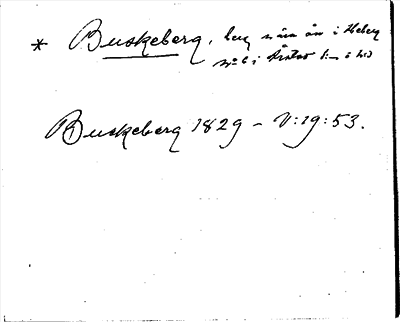 * Buskeberg, berg nära ån i Heberg
i Årstad
Buskeberg 1829 – V:19:53.